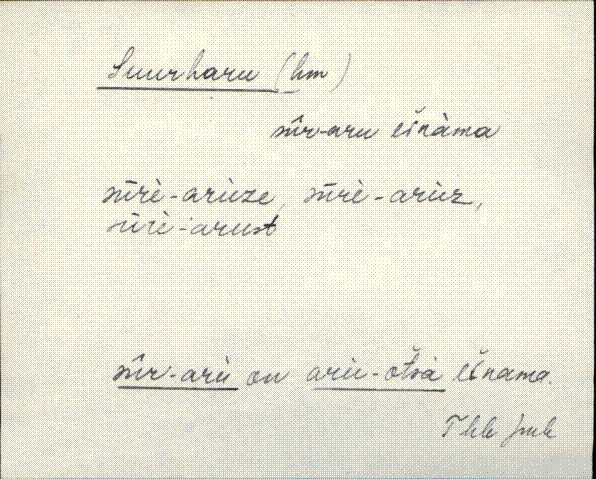 Suurharu (hm)
sūr-aru ešnàma
sūrè-arùze, sūrè-arùz,
sūrè-arust
sūr-arù on arù-otsà ešnama.